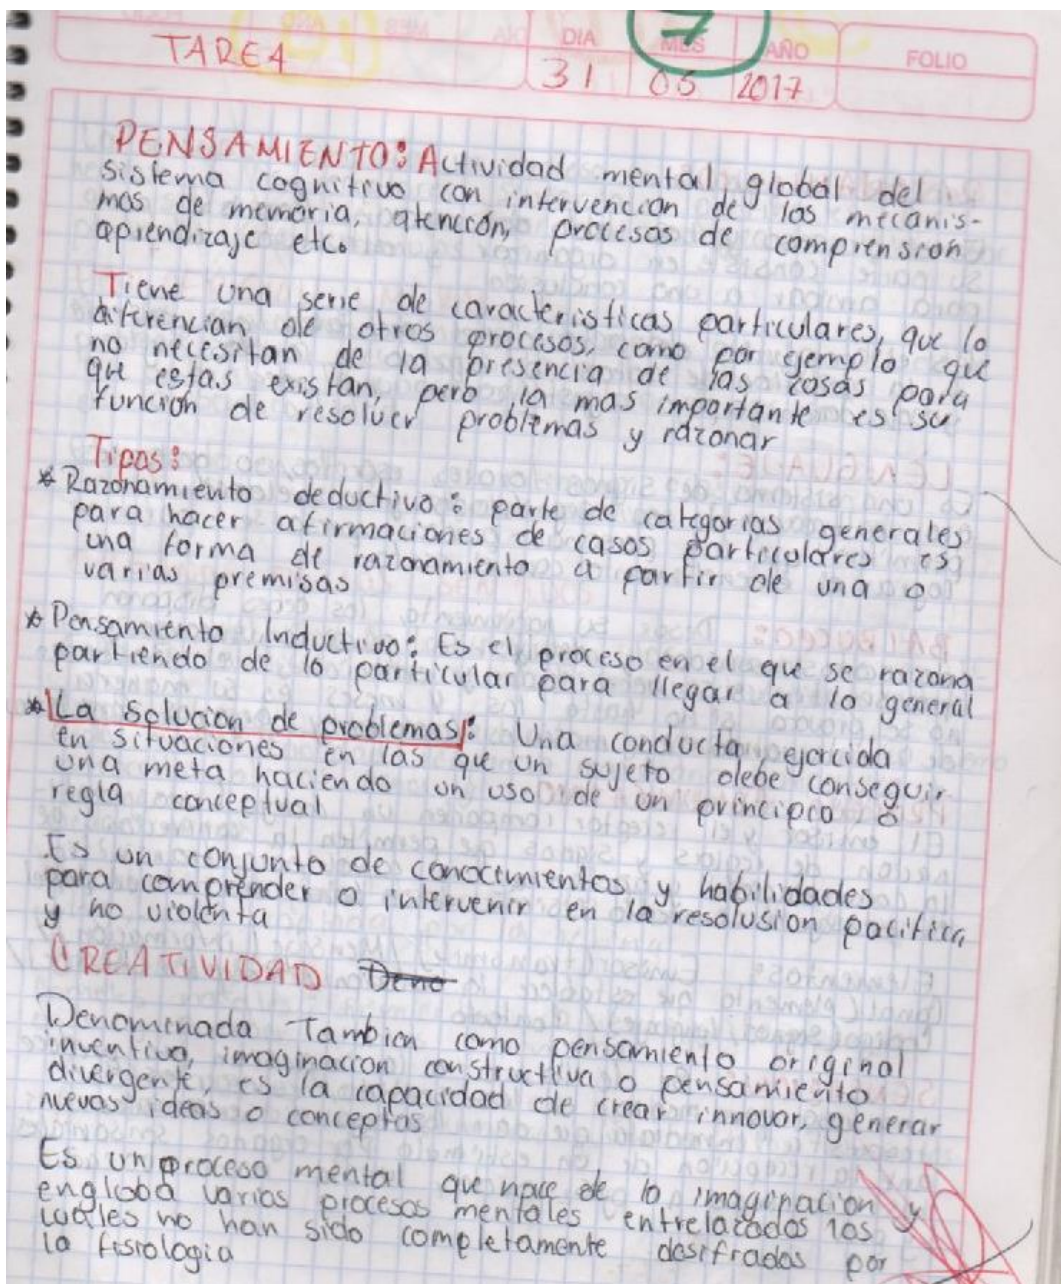 7
TAREA
DIA MES AÑO FOLIO
31 05 2017
PENSAMIENTO: Actividad mental global del
sistema cognitivo con intervencion de los mecanis-
mos de memoria, atención, procesos de comprension
aprendizaje etc.
Tiene una serie de caracteristicas particulares, que lo
diferencian de otros procesos, como por ejemplo que
no necesitan de la presencia de las cosas para
que estas existan, pero la mas importante es su
función de resolver problemas y razonar
Tipos:
* Razonamiento deductivo: parte de categorias generales
para hacer afirmaciones de casos particulares es
una forma de razonamiento a partir de una o
varias premisas
* Pensamiento Inductivo: Es el proceso en el que se razona
partiendo de lo particular para llegar a lo general
* La solucion de problemas: Una conducta ejercida
en situaciones en las que un sujeto debe conseguir
una meta haciendo un uso de un principio o
regla conceptual
Es un conjunto de conocimientos y habilidades
para comprender o intervenir en la resolusion pacifica
y no violenta
CREATIVIDAD Deno
Denominada Tambien como pensamiento original
inventiva, imaginacion constructiva o pensamiento
divergente, es la capacidad de crear innovar, generar
nuevas ideas o conceptos
Es un proceso mental que nace de la imaginacion y
engloba varios procesos mentales entrelazados los
cuales no han sido completamente desifrados por
la fisiologia